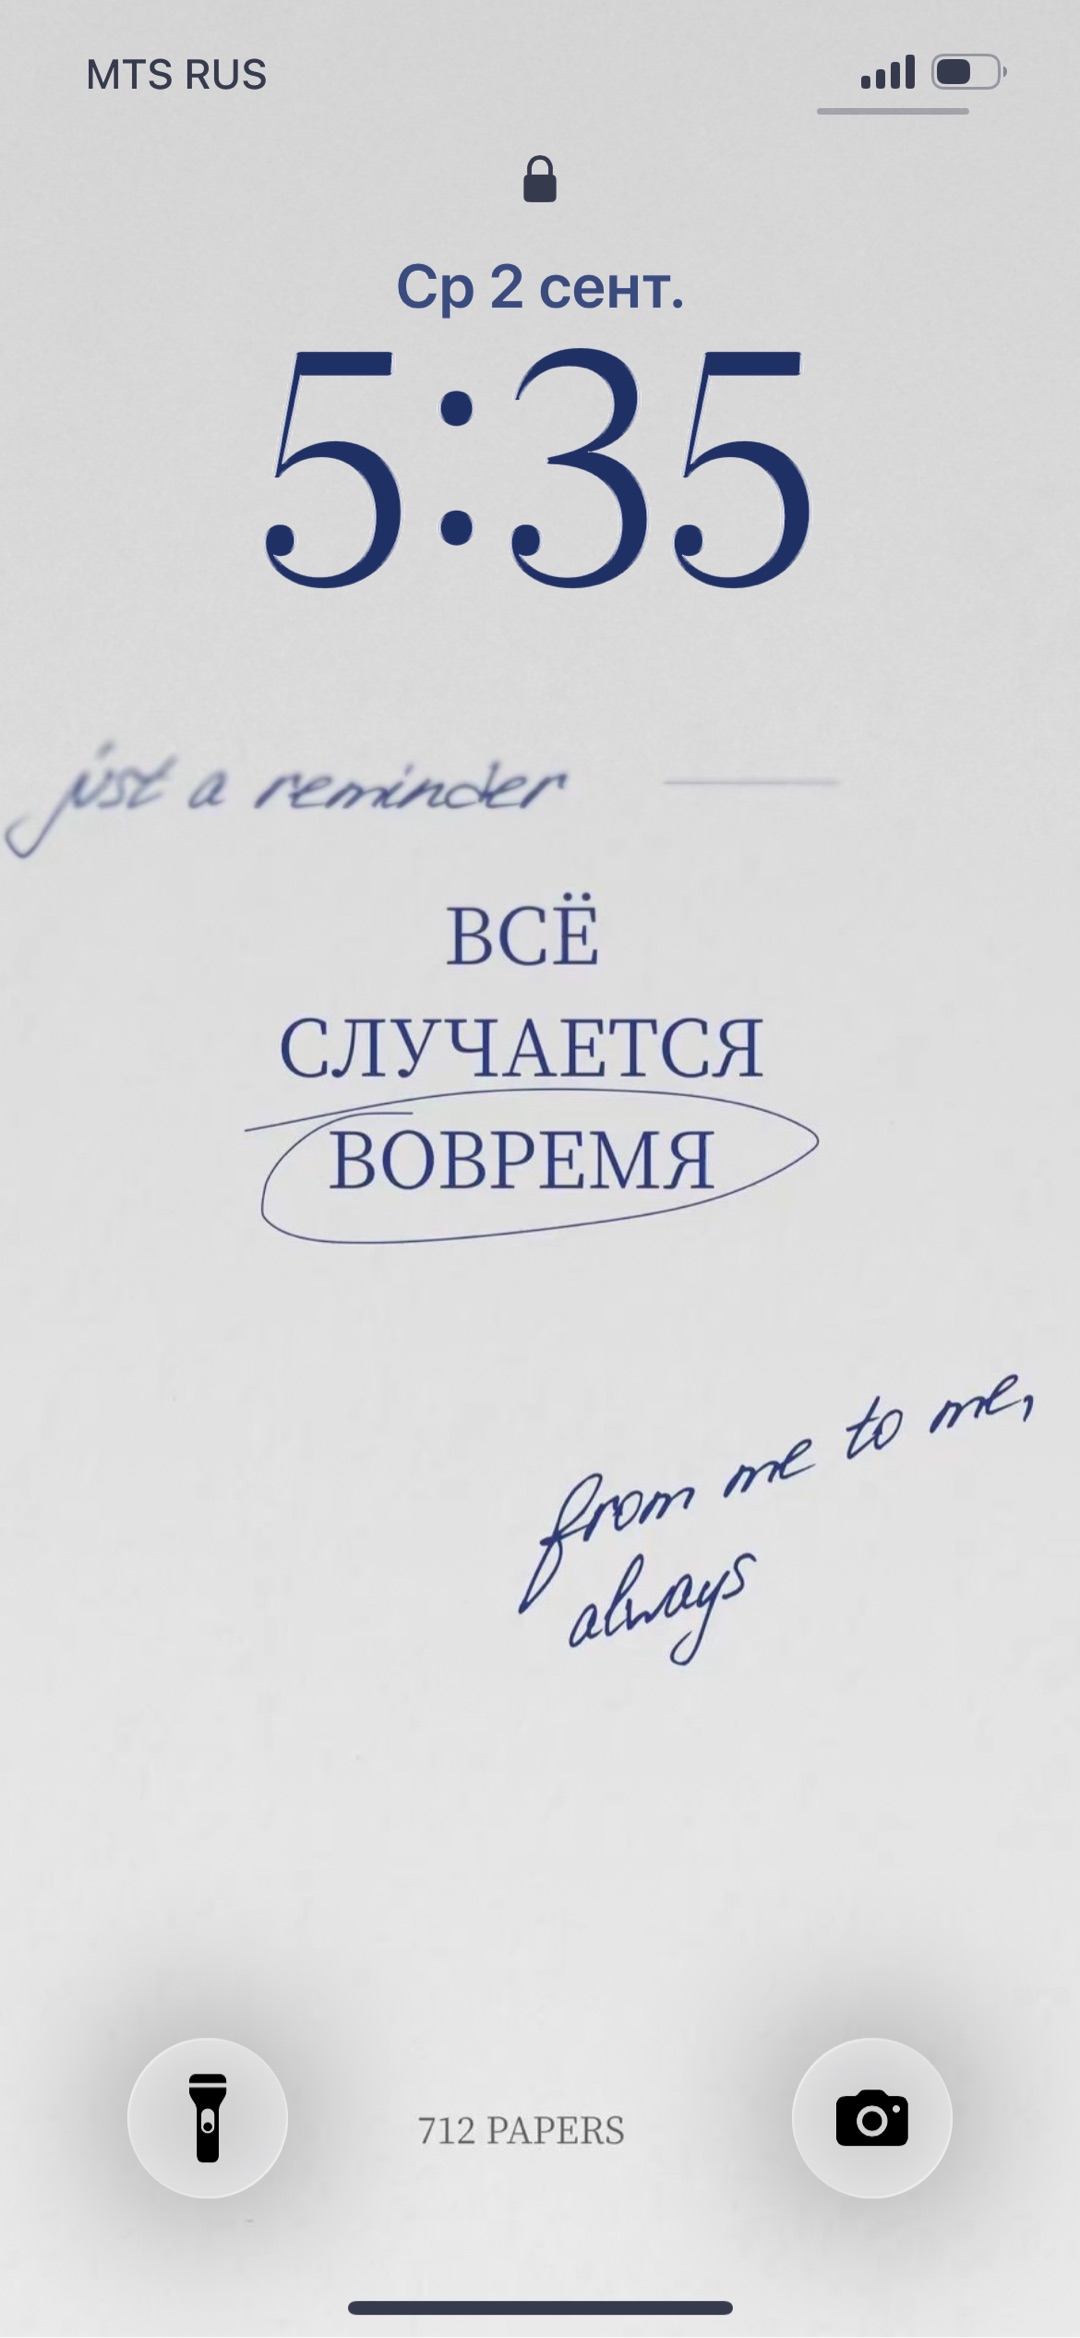 MTS RUS
Ср 2 сент.
5:35
just a reminder
ВСЁ
СЛУЧАЕТСЯ
ВОВРЕМЯ
from me to me,
always
712 PAPERS